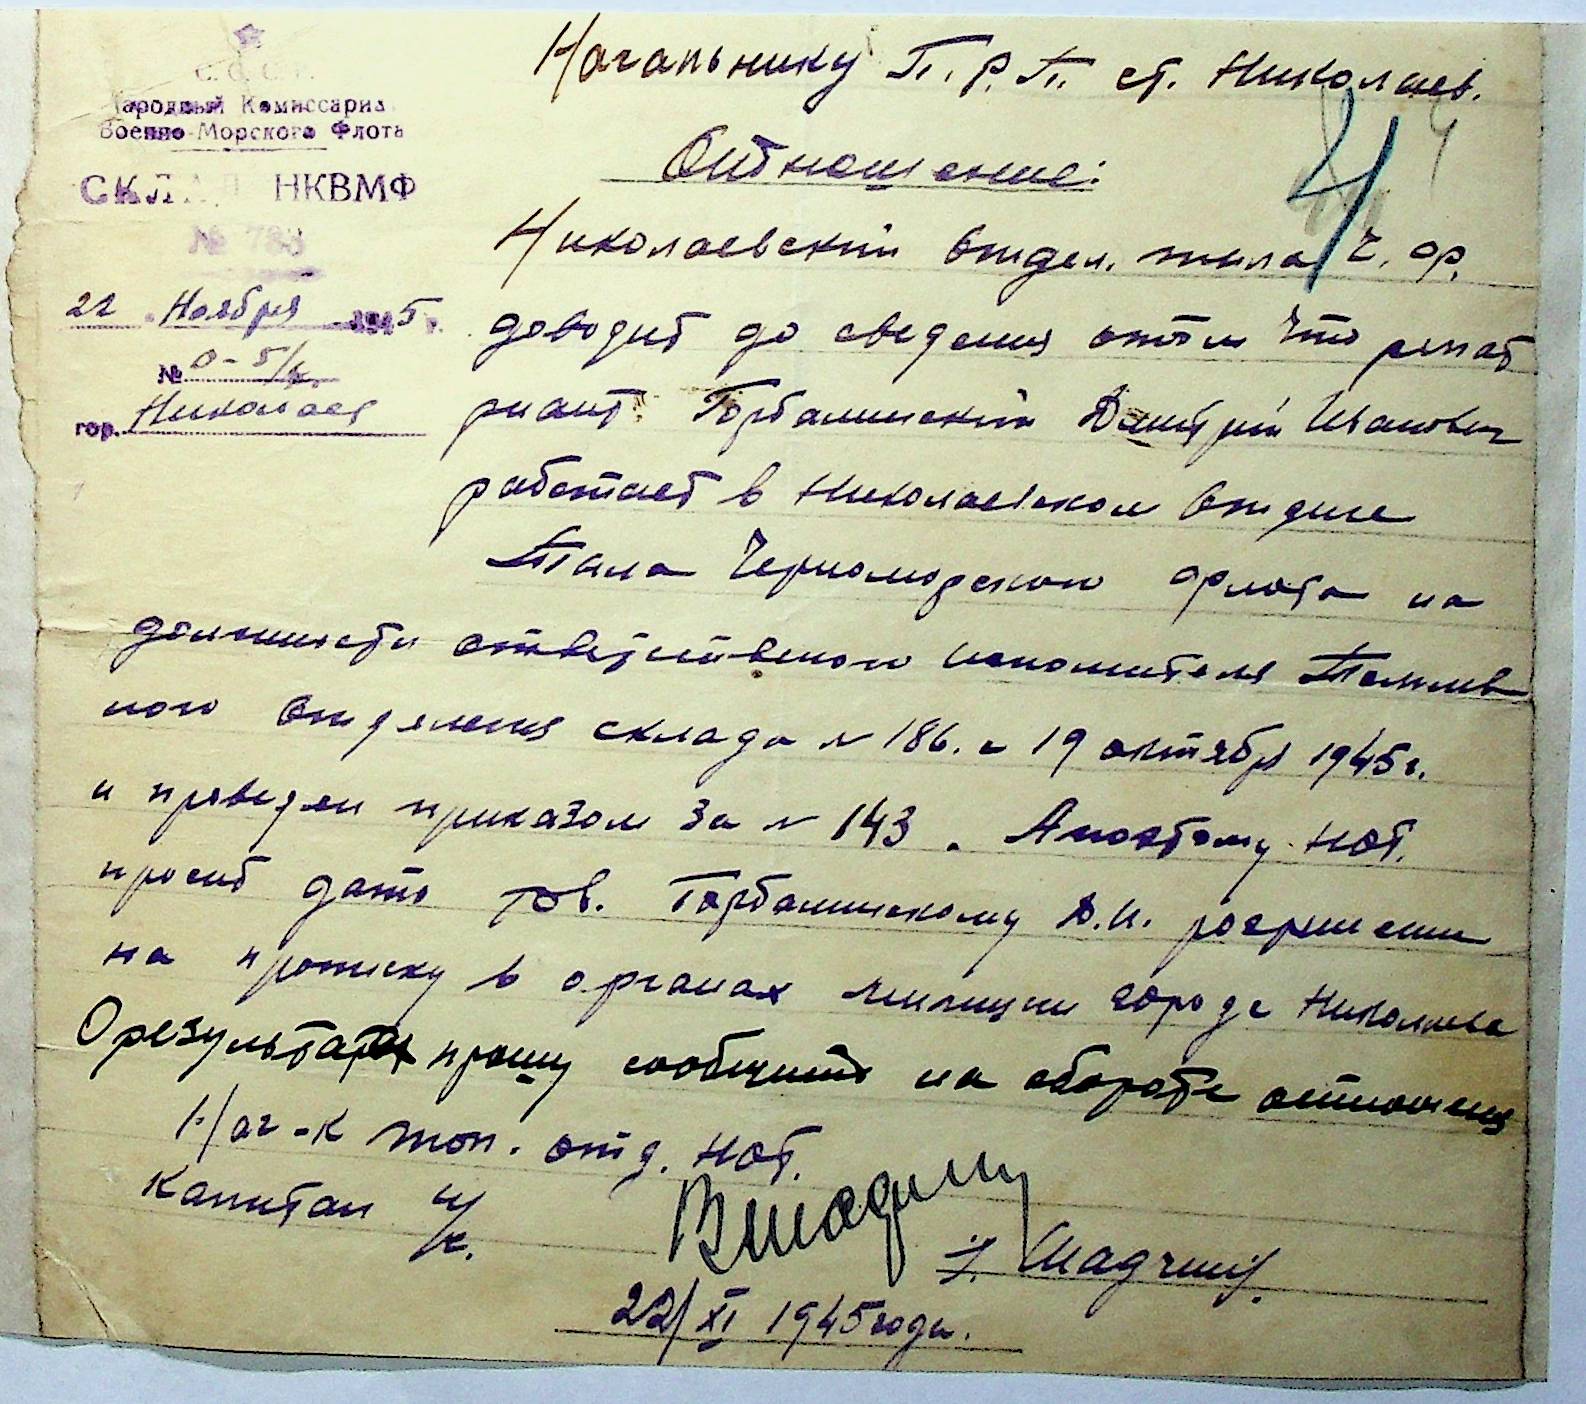 С.С.С.Р.
Народный Комиссариа
Военно-Морского Флота
СКЛАД НКВМФ
№ 788
22 Ноября 1945 г.
№ 0-5/к.
гор. Николаев
Начальнику П.Р.П. ст. Николаев.
4
Отношение:
Николаевский отдел. тыла Ч. Ф.
доводит до сведения о том что репат
риант Горбалинский Дмитрий Иванович
работает в Николаевском отделе
Тыла Черноморского флота на
должности ответственого исполнителя Топлив
ного отделения склада № 186. с 19 октября 1945 г.
и проведен приказом за № 143. А поэтому НОТ.
просит дать тов. Горбалинскому Д.И. разрешение
на прописку в органах милиции города Николаева
О результатах прошу сообщить на обороте отношения
Нач-к топ. отд. НОТ.
Капитан и/с.
22/XI 1945 года.